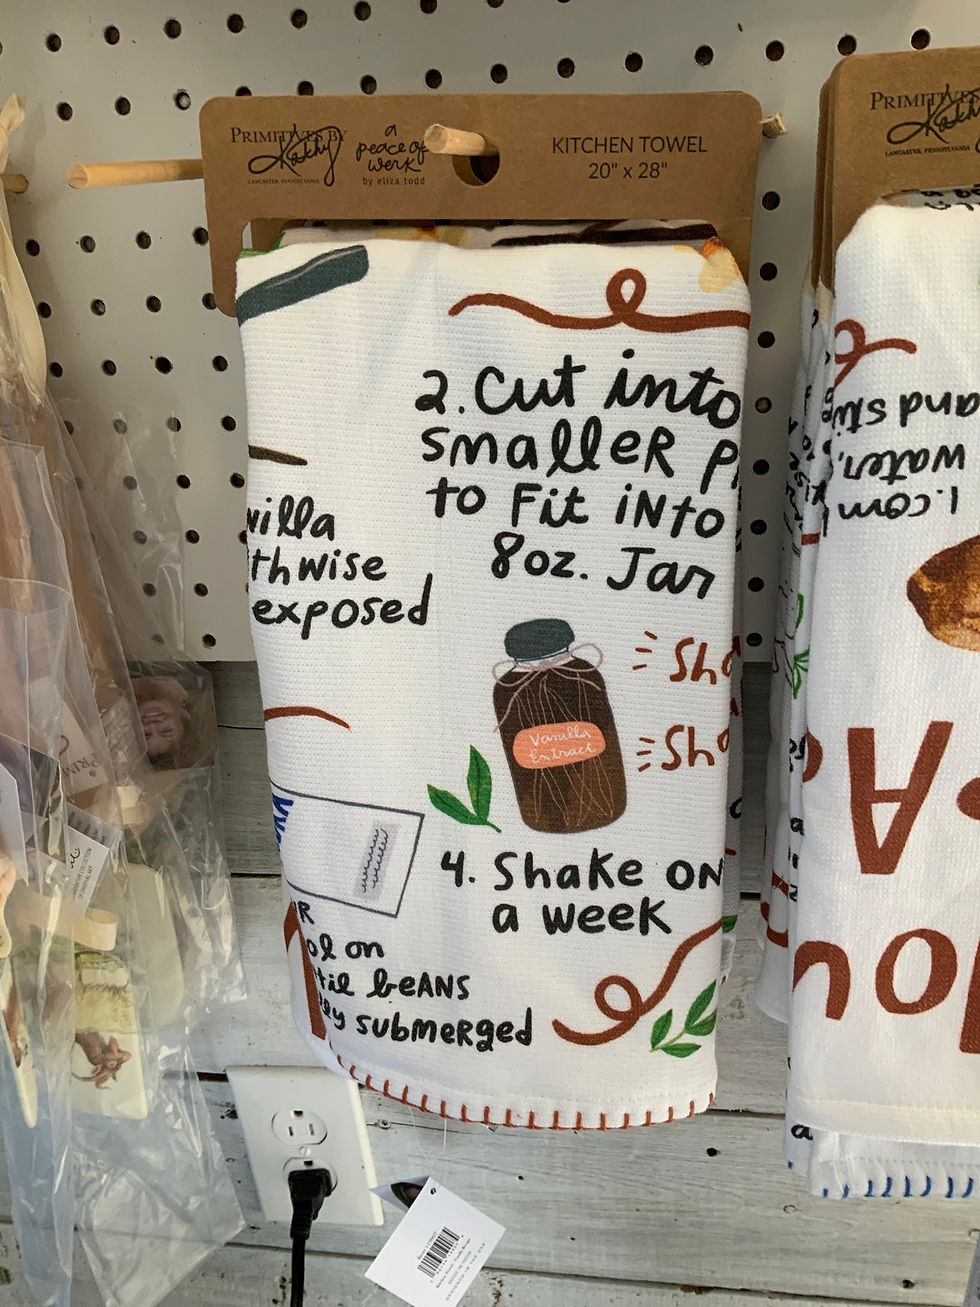 PRIMITIVES BY
Kathy
LANCASTER, PENNSYLVANIA
a
peace of
werk
by eliza todd
KITCHEN TOWEL
20" x 28"
PRIMITIVES
Kathy
LANCASTER, PENNSYLVANIA
2. Cut into
smalleR p
to Fit iNto
8oz. Jar
villa
thwise
exposed
Sha
Sha
Vanilla
Extract
4. Shake oN
a week
R
ol on
til beANS
ey submerged
1. com
water,
and sti
A
ou
a